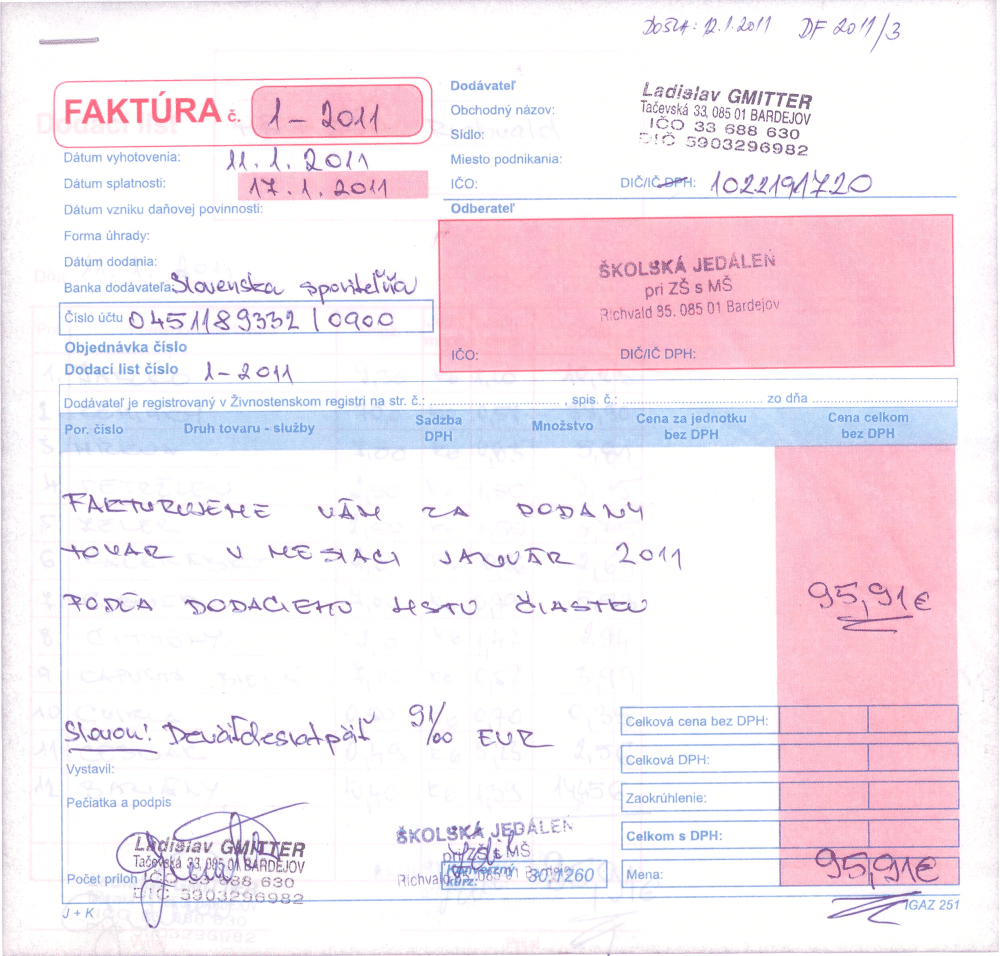 DOŠLA: 12.1.2011 DF 2011/3
FAKTÚRA č. 1-2011
Dátum vyhotovenia: 11.1.2011
Dátum splatnosti: 17.1.2011
Dátum vzniku daňovej povinnosti:
Forma úhrady:
Dátum dodania:
Banka dodávateľa: Slovenska sporiteľňa
Číslo účtu 0451189332/0900
Objednávka číslo
Dodací list číslo 1-2011
Dodávateľ
Obchodný názov:
Sídlo:
Miesto podnikania:
IČO:
DIČ/IČ DPH: 1022191720
Ladislav GMITTER
Tačevská 33, 085 01 BARDEJOV
IČO 33 688 630
DIČ 5903296982
Odberateľ
ŠKOLSKÁ JEDÁLEŇ
pri ZŠ s MŠ
Richvald 35, 085 01 Bardejov
IČO: DIČ/IČ DPH:
Dodávateľ je registrovaný v Živnostenskom registri na str. č.: , spis. č.: zo dňa
Por. číslo Druh tovaru - služby Sadzba DPH Množstvo Cena za jednotku bez DPH Cena celkom bez DPH
FAKTURUJEME VÁM ZA DODANÝ
TOVAR V MESIACI JANUÁR 2011
PODĽA DODACIEHO LISTU ČIASTKU 95,91€
Slovom: Deväťdesiatpäť 91/00 EUR
Vystavil:
Pečiatka a podpis
Ladislav GMITTER
Tačevská 33, 085 01 BARDEJOV
IČO 33 688 630
DIČ 5903296982
Počet príloh
ŠKOLSKÁ JEDÁLEŇ
pri ZŠ s MŠ
Richvald 35, 085 01
Konverzný kurz: 30,1260
Celková cena bez DPH:
Celková DPH:
Zaokrúhlenie:
Celkom s DPH:
Mena: 95,91€
J + K
IGAZ 251